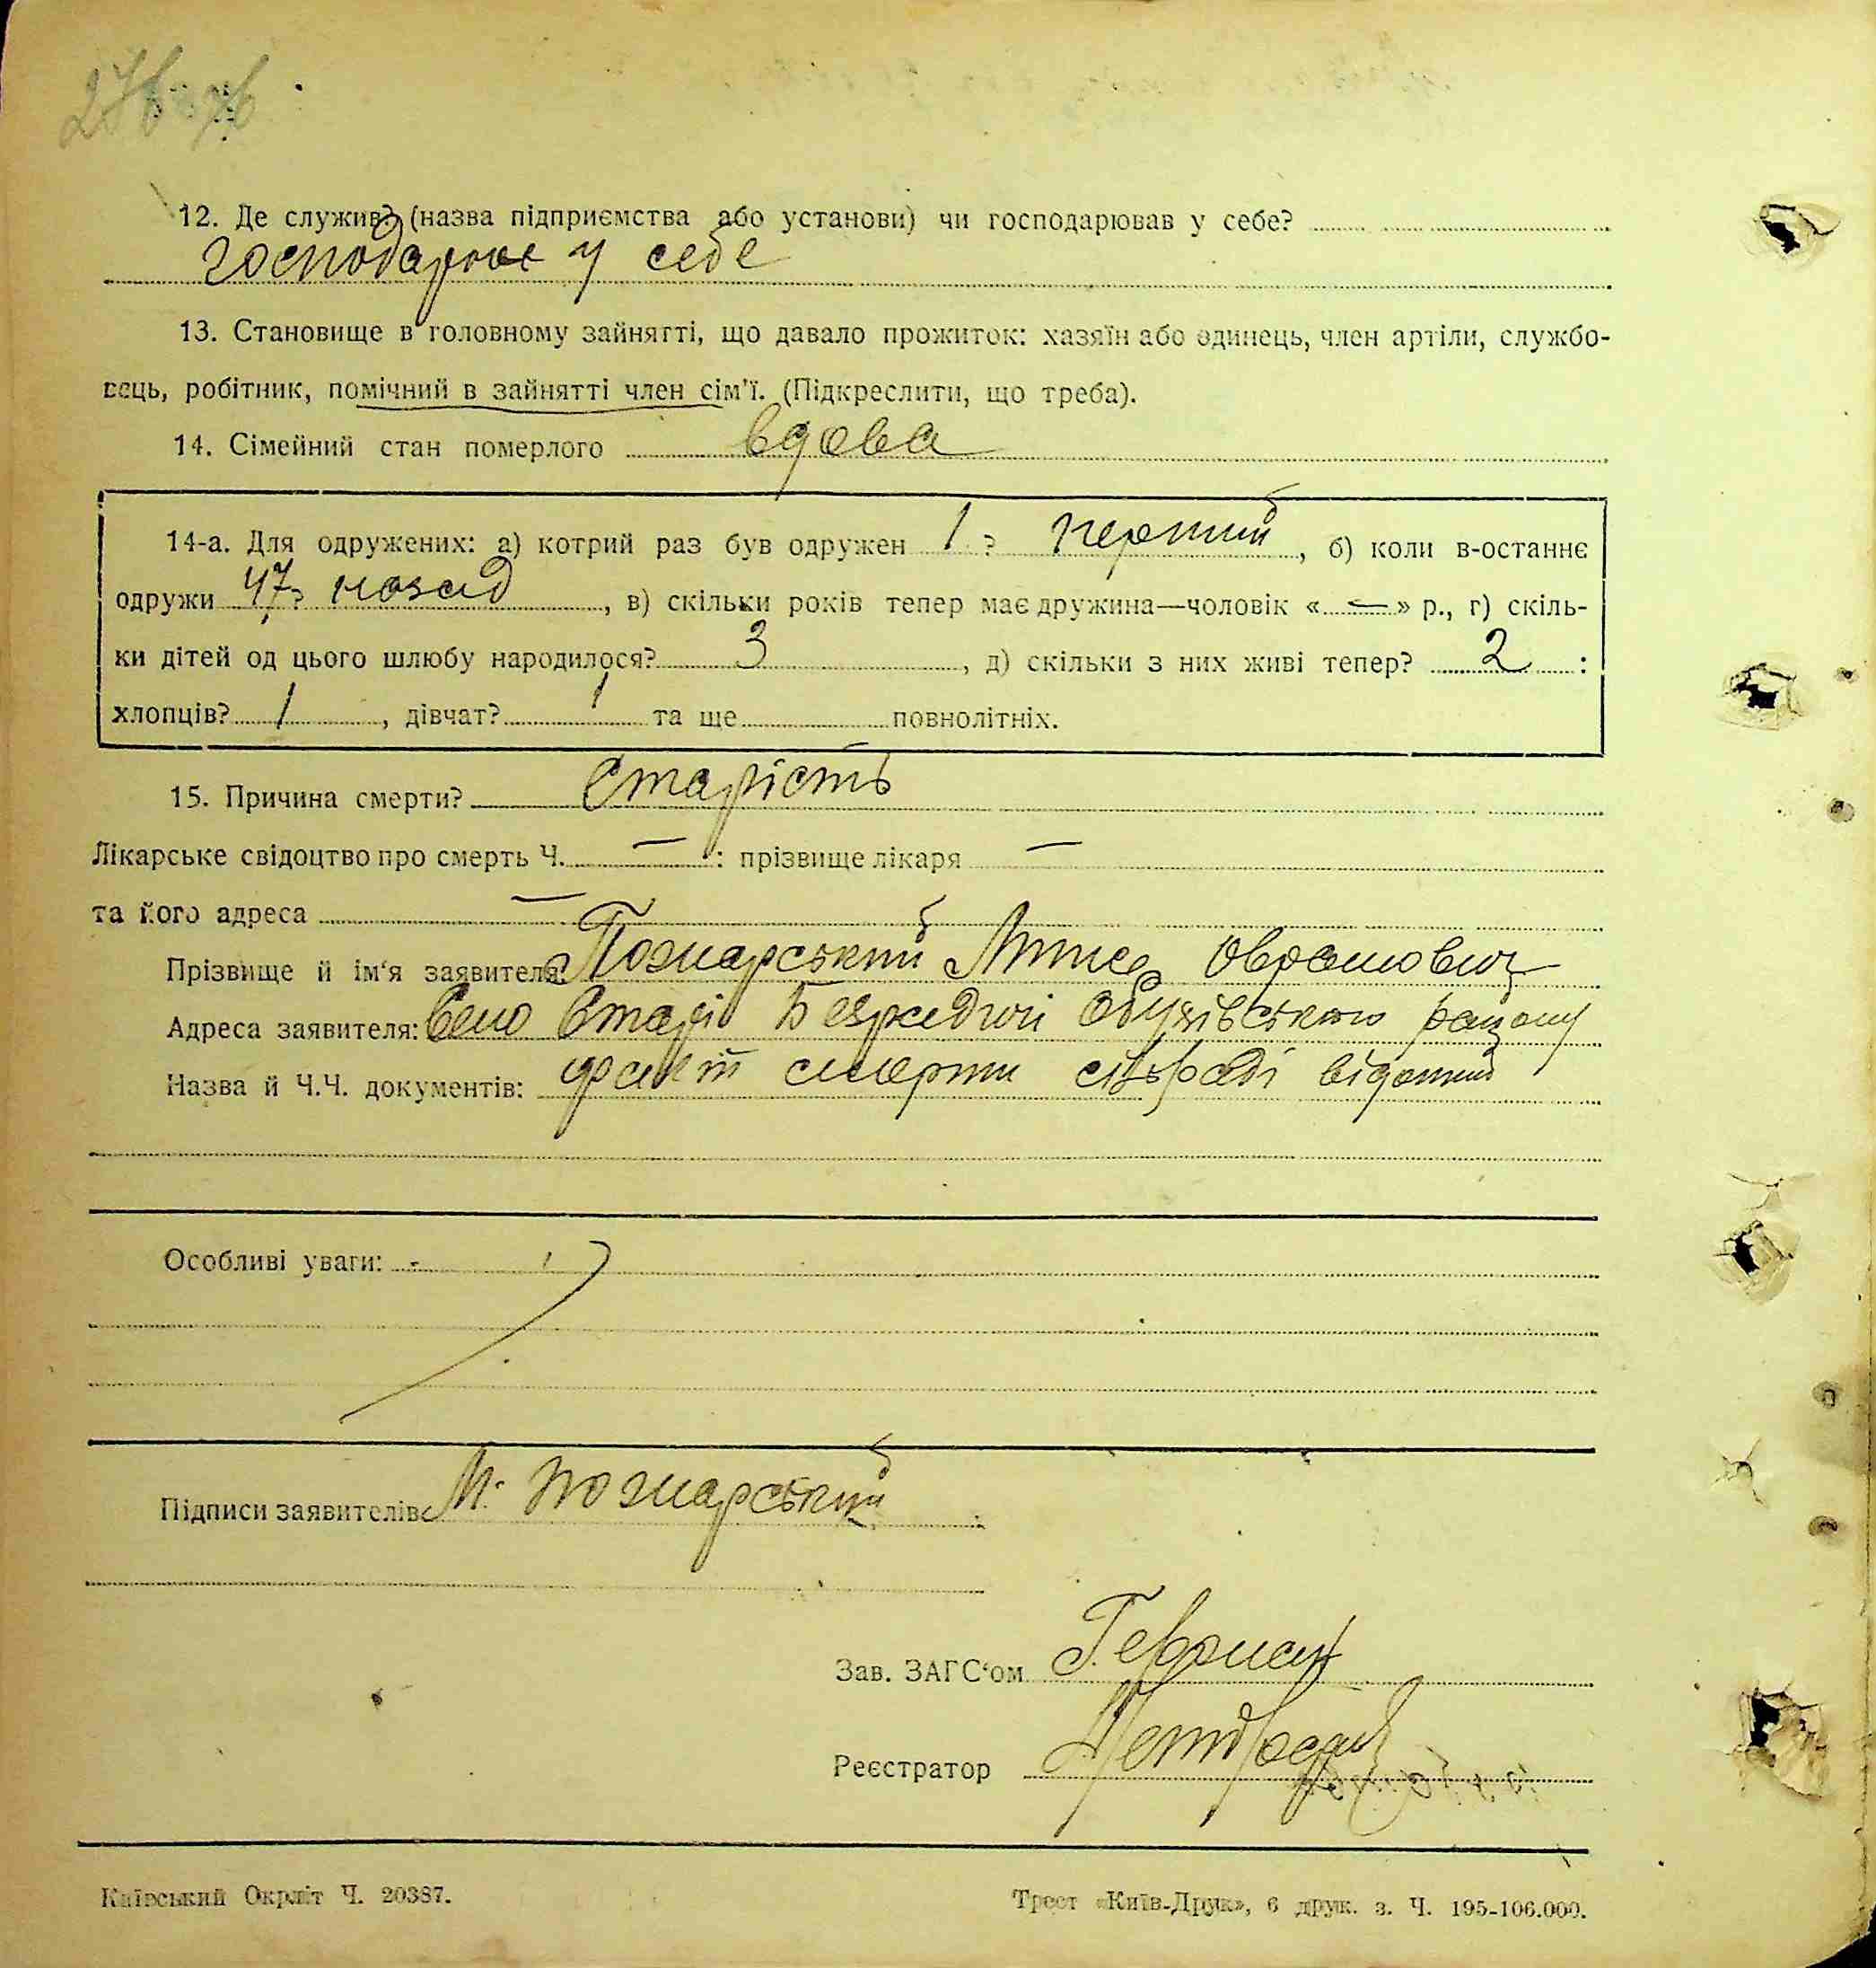 12. Де служив? (назва підприємства або установи) чи господарював у себе?
господарює у себе
13. Становище в головному зайнятті, що давало прожиток: хазяїн або одинець, член артіли, службо-
вець, робітник, помічний в зайнятті член сім'ї. (Підкреслити, що треба).
14. Сімейний стан померлого вдова
14-а. Для одружених: а) котрий раз був одружен 1? перший, б) коли в-останнє
одружи 47? назад, в) скільки років тепер має дружина—чоловік « — » р., г) скіль-
ки дітей од цього шлюбу народилося? 3, д) скільки з них живі тепер? 2 :
хлопців? 1, дівчат? 1 та ще повнолітніх.
15. Причина смерти? Старість
Лікарське свідоцтво про смерть Ч. — : прізвище лікаря —
та його адреса —
Прізвище й ім'я заявителя: Пожарський
Адреса заявителя: Село Старі Безрадичі Обухівського району
Назва й Ч.Ч. документів: факт смерти сільраді відомий
Особливі уваги: -
Підписи заявителів М. Пожарський
Зав. ЗАГС'ом
Реєстратор
Київський Окрліт Ч. 20387.
Трест «Київ-Друк», 6 друк. з. Ч. 195-106.000.